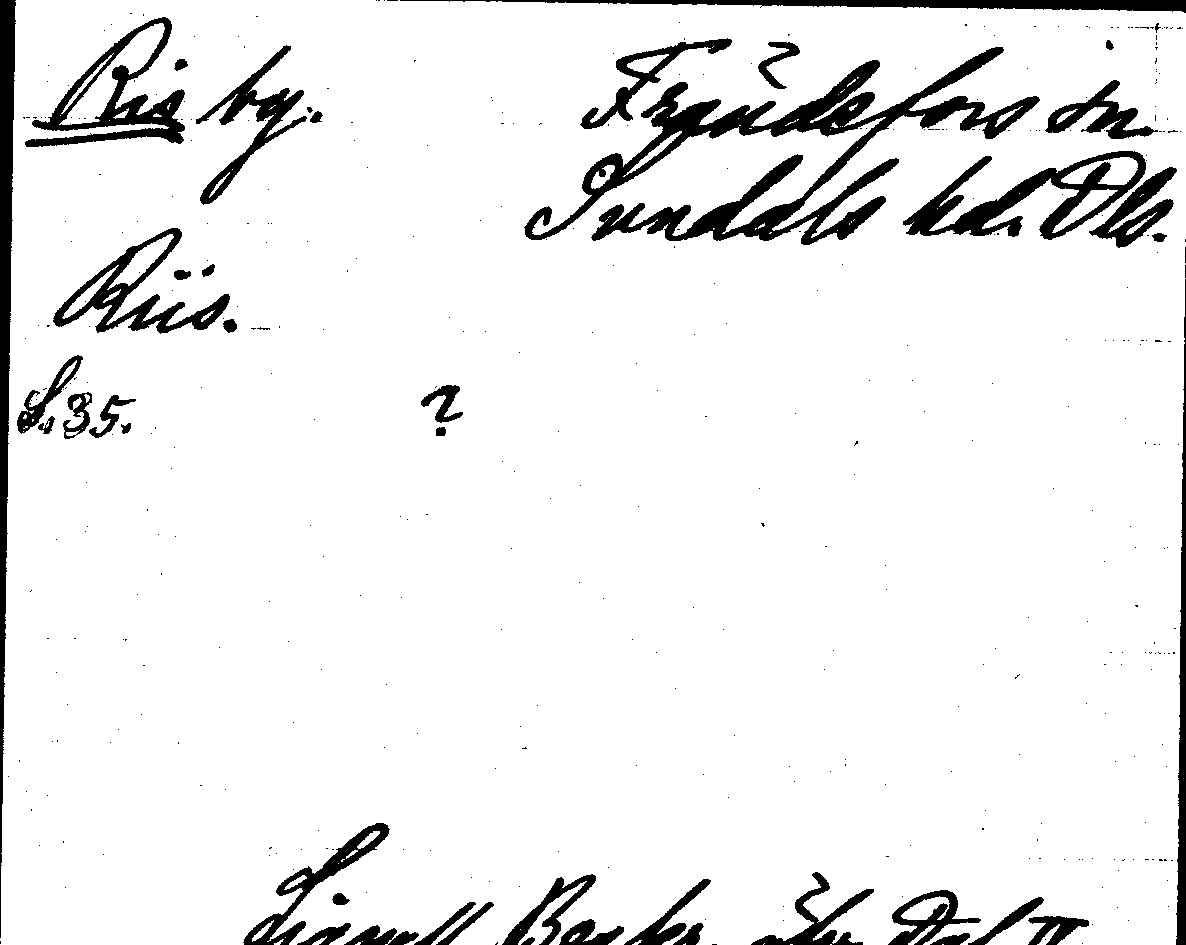 Ris by. Frändefors sn.
Sundals hd. Dls.
Riis.
S.35. ?
Lignell Beskr. över Dal II